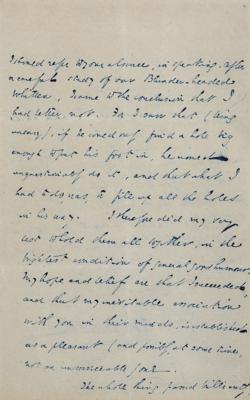 I should refer to your absence, in speaking. After
a careful study of our Blunder-headed
, I came to the conclusion that I
had better not. For I saw that (being
uneasy), if he could only find a hole big
enough to put his foot in, he would
unquestionably do it, and that what I
had to do was, to fill up all the holes
in his way. I therefore did my very
best to hold them all together, in the
brightest condition of general good humour.
My hope and belief are that I succeeded
and that my inevitable association
with you in their minds, is established
as a pleasant (and possibly at some time,
not an unserviceable) one.
The whole thing passed brilliantly